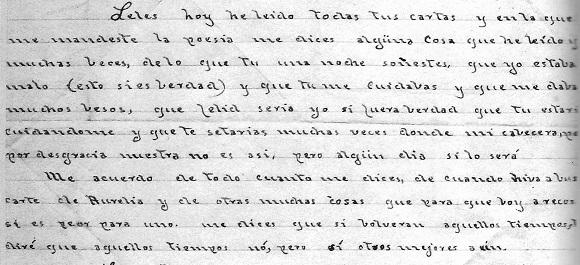 Leles hoy he leido todas tus cartas y en la que
me mandeste la poesia me dices algúna cosa que he leido y
muchas veces, delo que tu una noche soñestes, que yo estaba
malo (esto si es verdad) y que tu me cuidabas y que me daba
muchos besos, que feliz seria yo si fuera verdad que tu estari
cuidandome y que te setarias muchas veces donde mi cabecera, pe
por desgracia nuestra no es asi, pero algún dia si lo será
Me acuerdo de todo cuanto me dices, de cuando hiva a bus
carte de Aurelia y de otras muchas cosas que para que boy a recor
si es peor para uno. me dices que si volveran aquellos tiempos, t
diré que aquellos tiempos nó, pero sí otros mejores aún.